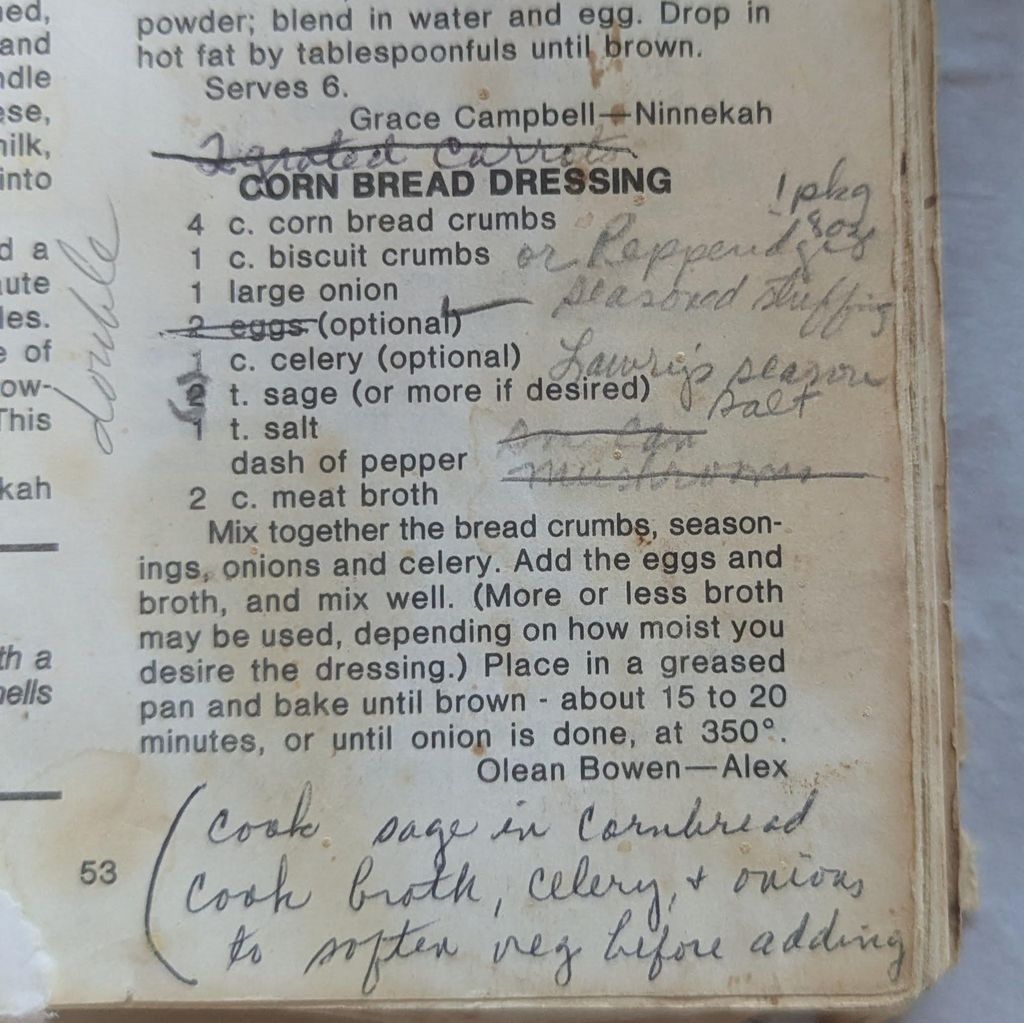 ned,
and
ndle
ese,
milk,
into
d a
aute
les.
e of
ow-
This
kah
th a
nells
53
double
powder; blend in water and egg. Drop in
hot fat by tablespoonfuls until brown.
Serves 6.
Grace Campbell—Ninnekah
2 grated carrots
CORN BREAD DRESSING
4 c. corn bread crumbs
1 pkg
8oz
1 c. biscuit crumbs or Pepperidges
1 large onion seasoned stuffing
2 eggs (optional)
1 c. celery (optional) Lawry's season
2 t. sage (or more if desired) salt
1 t. salt
dash of pepper mushrooms
2 c. meat broth
Mix together the bread crumbs, season-
ings, onions and celery. Add the eggs and
broth, and mix well. (More or less broth
may be used, depending on how moist you
desire the dressing.) Place in a greased
pan and bake until brown - about 15 to 20
minutes, or until onion is done, at 350°.
Olean Bowen—Alex
(cook sage in cornbread
cook broth, celery, + onions
to soften veg before adding